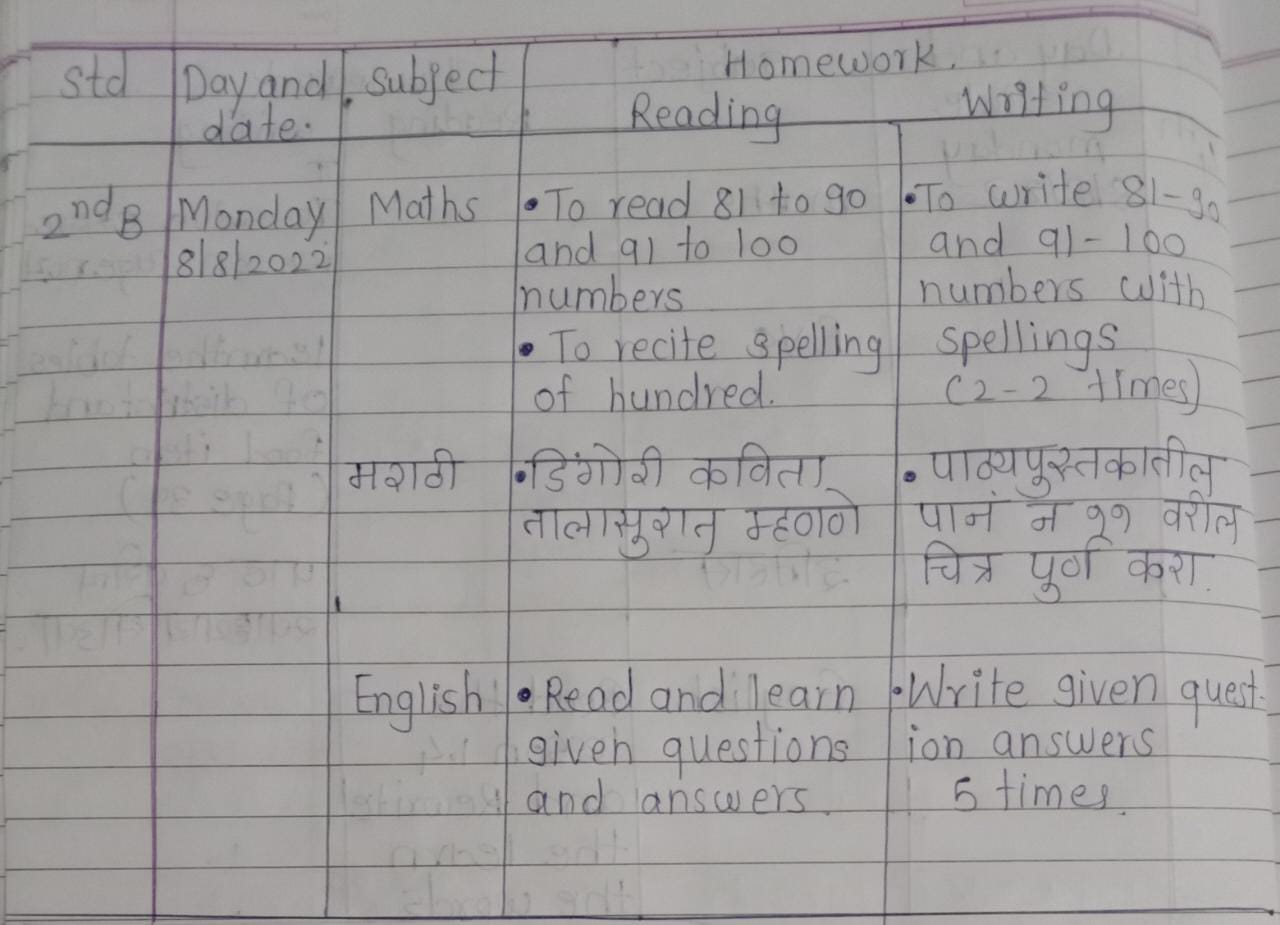 Std Day and Subject Homework.
date. Reading Writing
2nd B Monday Maths • To read 81 to 90 • To write 81-90
8/8/2022 and 91 to 100 and 91-100
numbers numbers with
• To recite spelling spellings
of hundred. (2-2 times)
मराठी • डिंगोरी कविता • पाठ्यपुस्तकातील
तालासुरात म्हणणे पानं न ११ वरील
चित्र पुर्ण करा.
English • Read and learn • Write given quest-
given questions ion answers
and answers. 5 times.